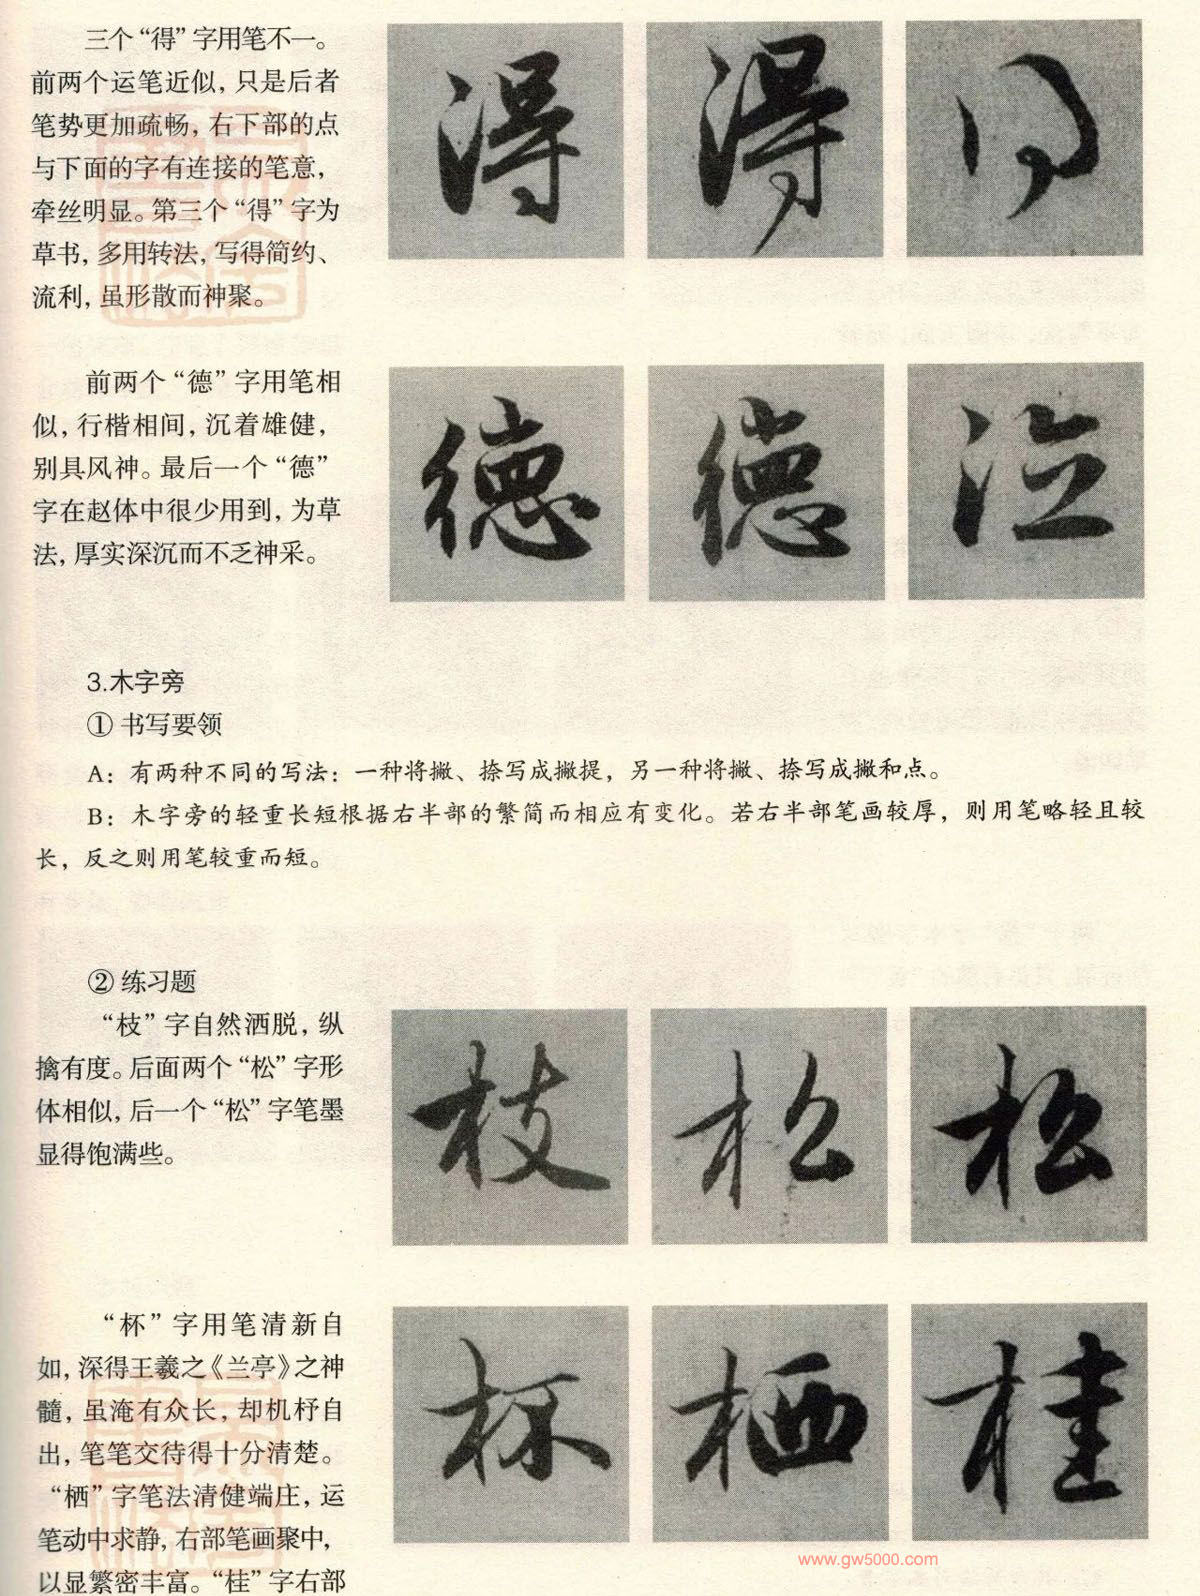 三个“得”字用笔不一。
前两个运笔近似，只是后者
笔势更加疏畅，右下部的点
与下面的字有连接的笔意，
牵丝明显。第三个“得”字为
草书，多用转法，写得简约、
流利，虽形散而神聚。
得 得 得
前两个“德”字用笔相
似，行楷相间，沉着雄健，
别具风神。最后一个“德”
字在赵体中很少用到，为草
法，厚实深沉而不乏神采。
德 德 德
3.木字旁
① 书写要领
A：有两种不同的写法：一种将撇、捺写成撇提，另一种将撇、捺写成撇和点。
B：木字旁的轻重长短根据右半部的繁简而相应有变化。若右半部笔画较厚，则用笔略轻且较
长，反之则用笔较重而短。
② 练习题
“枝”字自然洒脱，纵
擒有度。后面两个“松”字形
体相似，后一个“松”字笔墨
显得饱满些。
枝 松 松
“杯”字用笔清新自
如，深得王羲之《兰亭》之神
髓，虽淹有众长，却机杼自
出，笔笔交待得十分清楚。
“栖”字笔法清健端庄，运
笔动中求静，右部笔画聚中，
以显繁密丰富。“桂”字右部
杯 栖 桂
www.gw5000.com